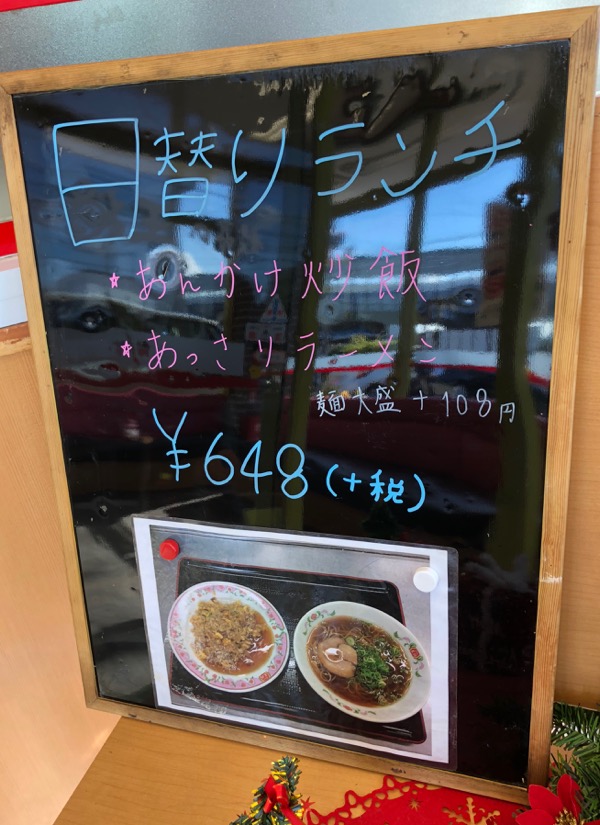 日替りランチ
☆あんかけ炒飯
☆あっさりラーメン
麺大盛+108円
¥648(+税)